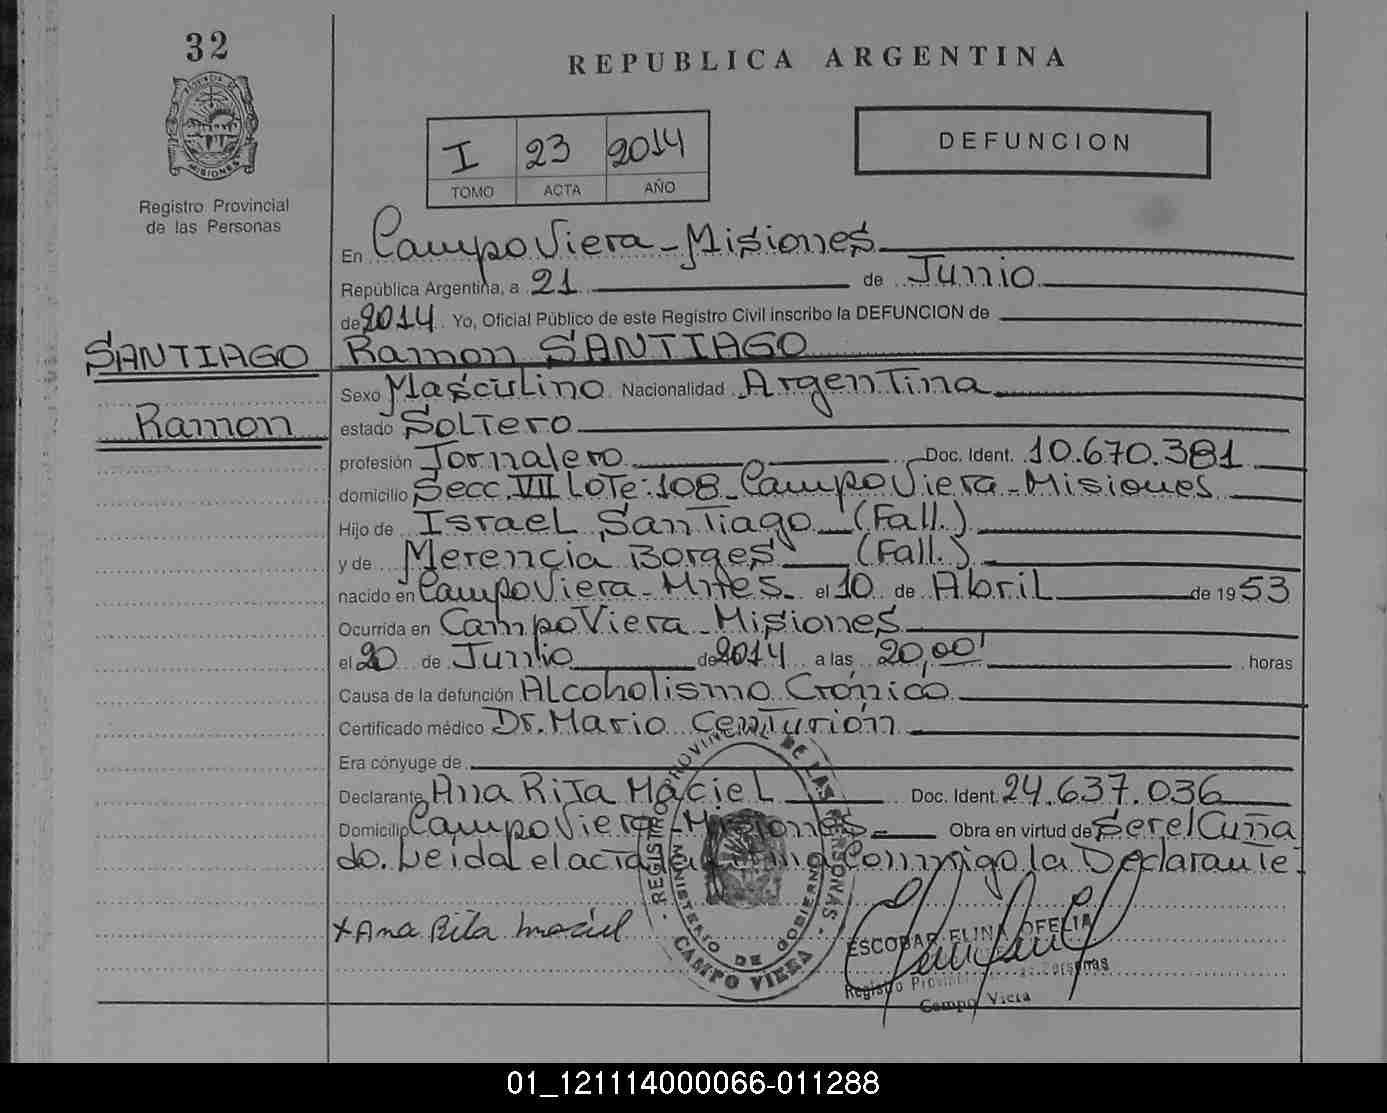 32
REPUBLICA ARGENTINA
PROVINCIA DE
MISIONES
Registro Provincial
de las Personas
I 23 2014
TOMO ACTA AÑO
DEFUNCION
En Campo Viera - Misiones
República Argentina, a 21 de Junio
de 2014 Yo, Oficial Público de este Registro Civil inscribo la DEFUNCION de
SANTIAGO
Ramon
Ramon SANTIAGO
Sexo Masculino Nacionalidad Argentina
estado Soltero
profesión Jornalero Doc. Ident. 10.670.381
domicilio Secc. VII Lote: 108 - Campo Viera - Misiones
Hijo de Israel Santiago (Fall.)
y de Merencia Borges (Fall.)
nacido en Campo Viera - Mnes. el 10 de Abril de 1953
Ocurrida en Campo Viera - Misiones
el 20 de Junio de 2014 a las 20,00' horas
Causa de la defunción Alcoholismo Crónico
Certificado médico Dr. Mario Centurión
Era cónyuge de
Declarante Ana Rita Maciel Doc. Ident. 24.637.036
Domicilio Campo Viera - Misiones - Obra en virtud de Ser el Cuña
do. Leída el acta conmigo la Declarante.
x Ana Rita Maciel
REGISTRO PROVINCIAL DE LAS PERSONAS
MINISTERIO DE GOBIERNO
CAMPO VIERA
ESCOBAR ELINA OFELIA
Registro Provincial de las Personas
Campo Viera
01_121114000066-011288